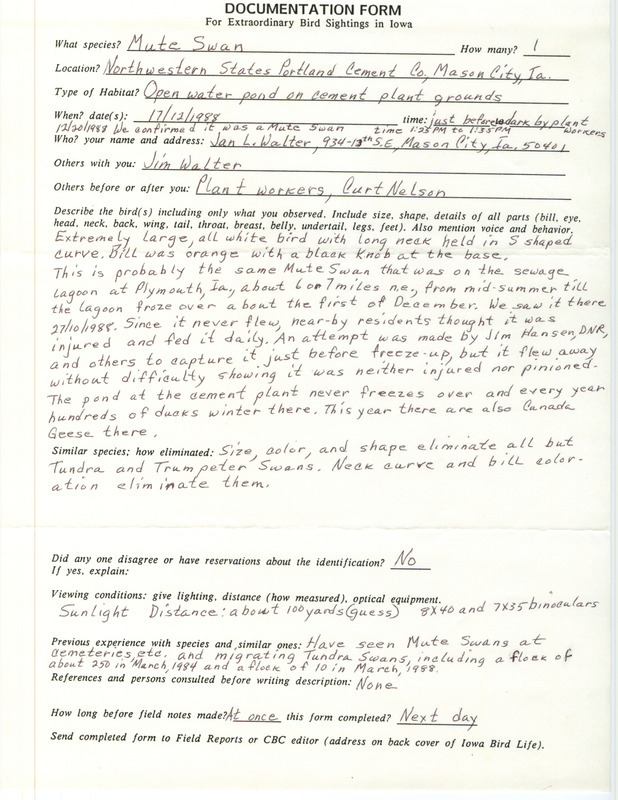 DOCUMENTATION FORM
For Extraordinary Bird Sightings in Iowa
What species? Mute Swan How many? 1
Location? Northwestern States Portland Cement Co, Mason City, Ia.
Type of Habitat? Open water pond on cement plant grounds
When? date(s): 17/12/1988 time: just before dark by plant workers
12/20/1988 We confirmed it was a Mute Swan time 1:25 PM to 1:35 PM
Who? your name and address: Jan L. Walter, 934-13th S.E, Mason City, Ia. 50401
Others with you: Jim Walter
Others before or after you: Plant workers, Curt Nelson
Describe the bird(s) including only what you observed. Include size, shape, details of all parts (bill, eye,
head, neck, back, wing, tail, throat, breast, belly, undertail, legs, feet). Also mention voice and behavior.
Extremely large, all white bird with long neck held in S shaped
curve. Bill was orange with a black Knob at the base.
This is probably the same Mute Swan that was on the sewage
lagoon at Plymouth, Ia., about 6 or 7 miles n.e., from mid-summer till
the lagoon froze over about the first of December. We saw it there
27/10/1988. Since it never flew, near-by residents thought it was
injured and fed it daily. An attempt was made by Jim Hansen, DNR,
and others to capture it just before freeze-up, but it flew away
without difficulty showing it was neither injured nor pinioned.
The pond at the cement plant never freezes over and every year
hundreds of ducks winter there. This year there are also Canada
Geese there.
Similar species; how eliminated: Size, color, and shape eliminate all but
Tundra and Trumpeter Swans. Neck curve and bill color-
ation eliminate them.
Did any one disagree or have reservations about the identification? No
If yes, explain:
Viewing conditions: give lighting, distance (how measured), optical equipment.
Sunlight Distance: about 100 yards (guess) 8X40 and 7X35 binoculars
Previous experience with species and similar ones: Have seen Mute Swans at
cemeteries, etc. and migrating Tundra Swans, including a flock of
about 250 in March, 1984 and a flock of 10 in March, 1988.
References and persons consulted before writing description: None
How long before field notes made? At once this form completed? Next day
Send completed form to Field Reports or CBC editor (address on back cover of Iowa Bird Life).